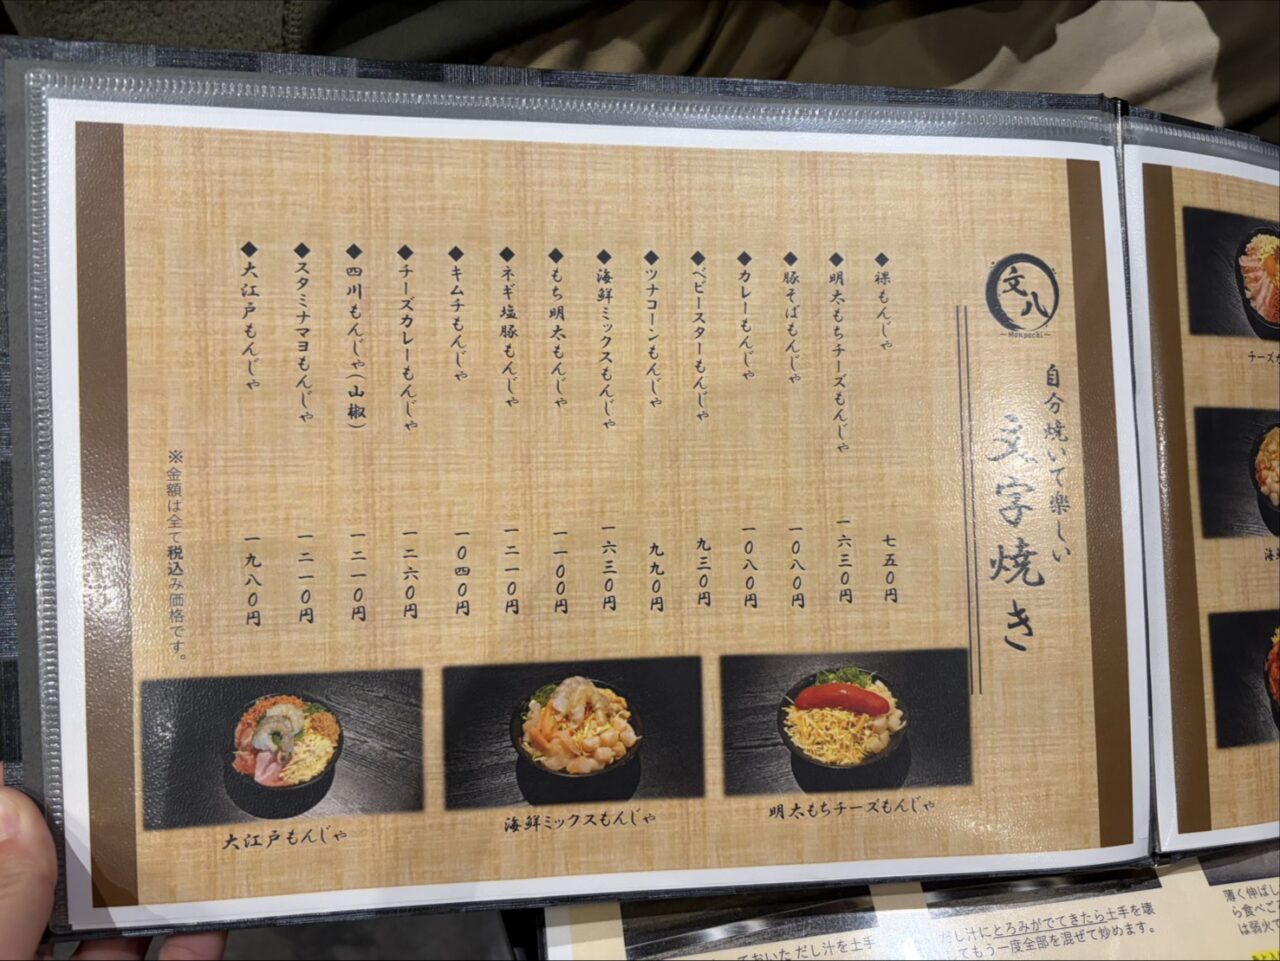 文八
～Monpachi～
自分焼いて楽しい
文字焼き
◆裸もんじゃ 七五〇円
◆明太もちチーズもんじゃ 一六三〇円
◆豚そばもんじゃ 一〇八〇円
◆カレーもんじゃ 一〇八〇円
◆ベビースターもんじゃ 九三〇円
◆ツナコーンもんじゃ 九九〇円
◆海鮮ミックスもんじゃ 一六三〇円
◆もち明太もんじゃ 一一〇〇円
◆ネギ塩豚もんじゃ 一二一〇円
◆キムチもんじゃ 一〇四〇円
◆チーズカレーもんじゃ 一二六〇円
◆四川もんじゃ(山椒) 一二一〇円
◆スタミナマヨもんじゃ 一二一〇円
◆大江戸もんじゃ 一九八〇円
※金額は全て税込み価格です。
明太もちチーズもんじゃ
海鮮ミックスもんじゃ
大江戸もんじゃ
チーズカ
海
ておいた だし汁を土手
だし汁にとろみがでてきたら土手を壊
してもう一度全部を混ぜて炒めます。
薄く伸ばし
ら食べご
は弱火で